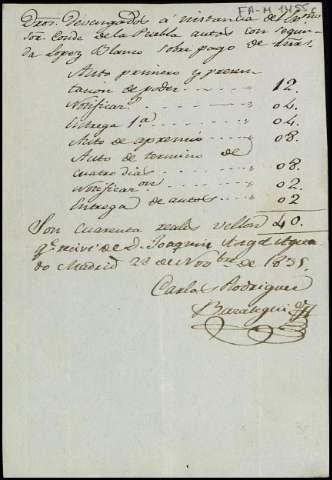 FA-M 1455
Dros. Devengados á instancia del
Sor. Conde de la Puebla autos con
da Lopez Blanco sobre pago de
Auto primero y presen
tacion de poder 12
Notificaon 04
Entrega 1ª 04
Auto de apremio 08
Auto de termino de
cuatro dias 08
Notificaon 02
Entrega de autos 02
Son cuarenta reales vellon 40
qe. reciví de D. Joaquin
do Madrid 28 de Novbre. de 1835.
Carlos Rodriguez